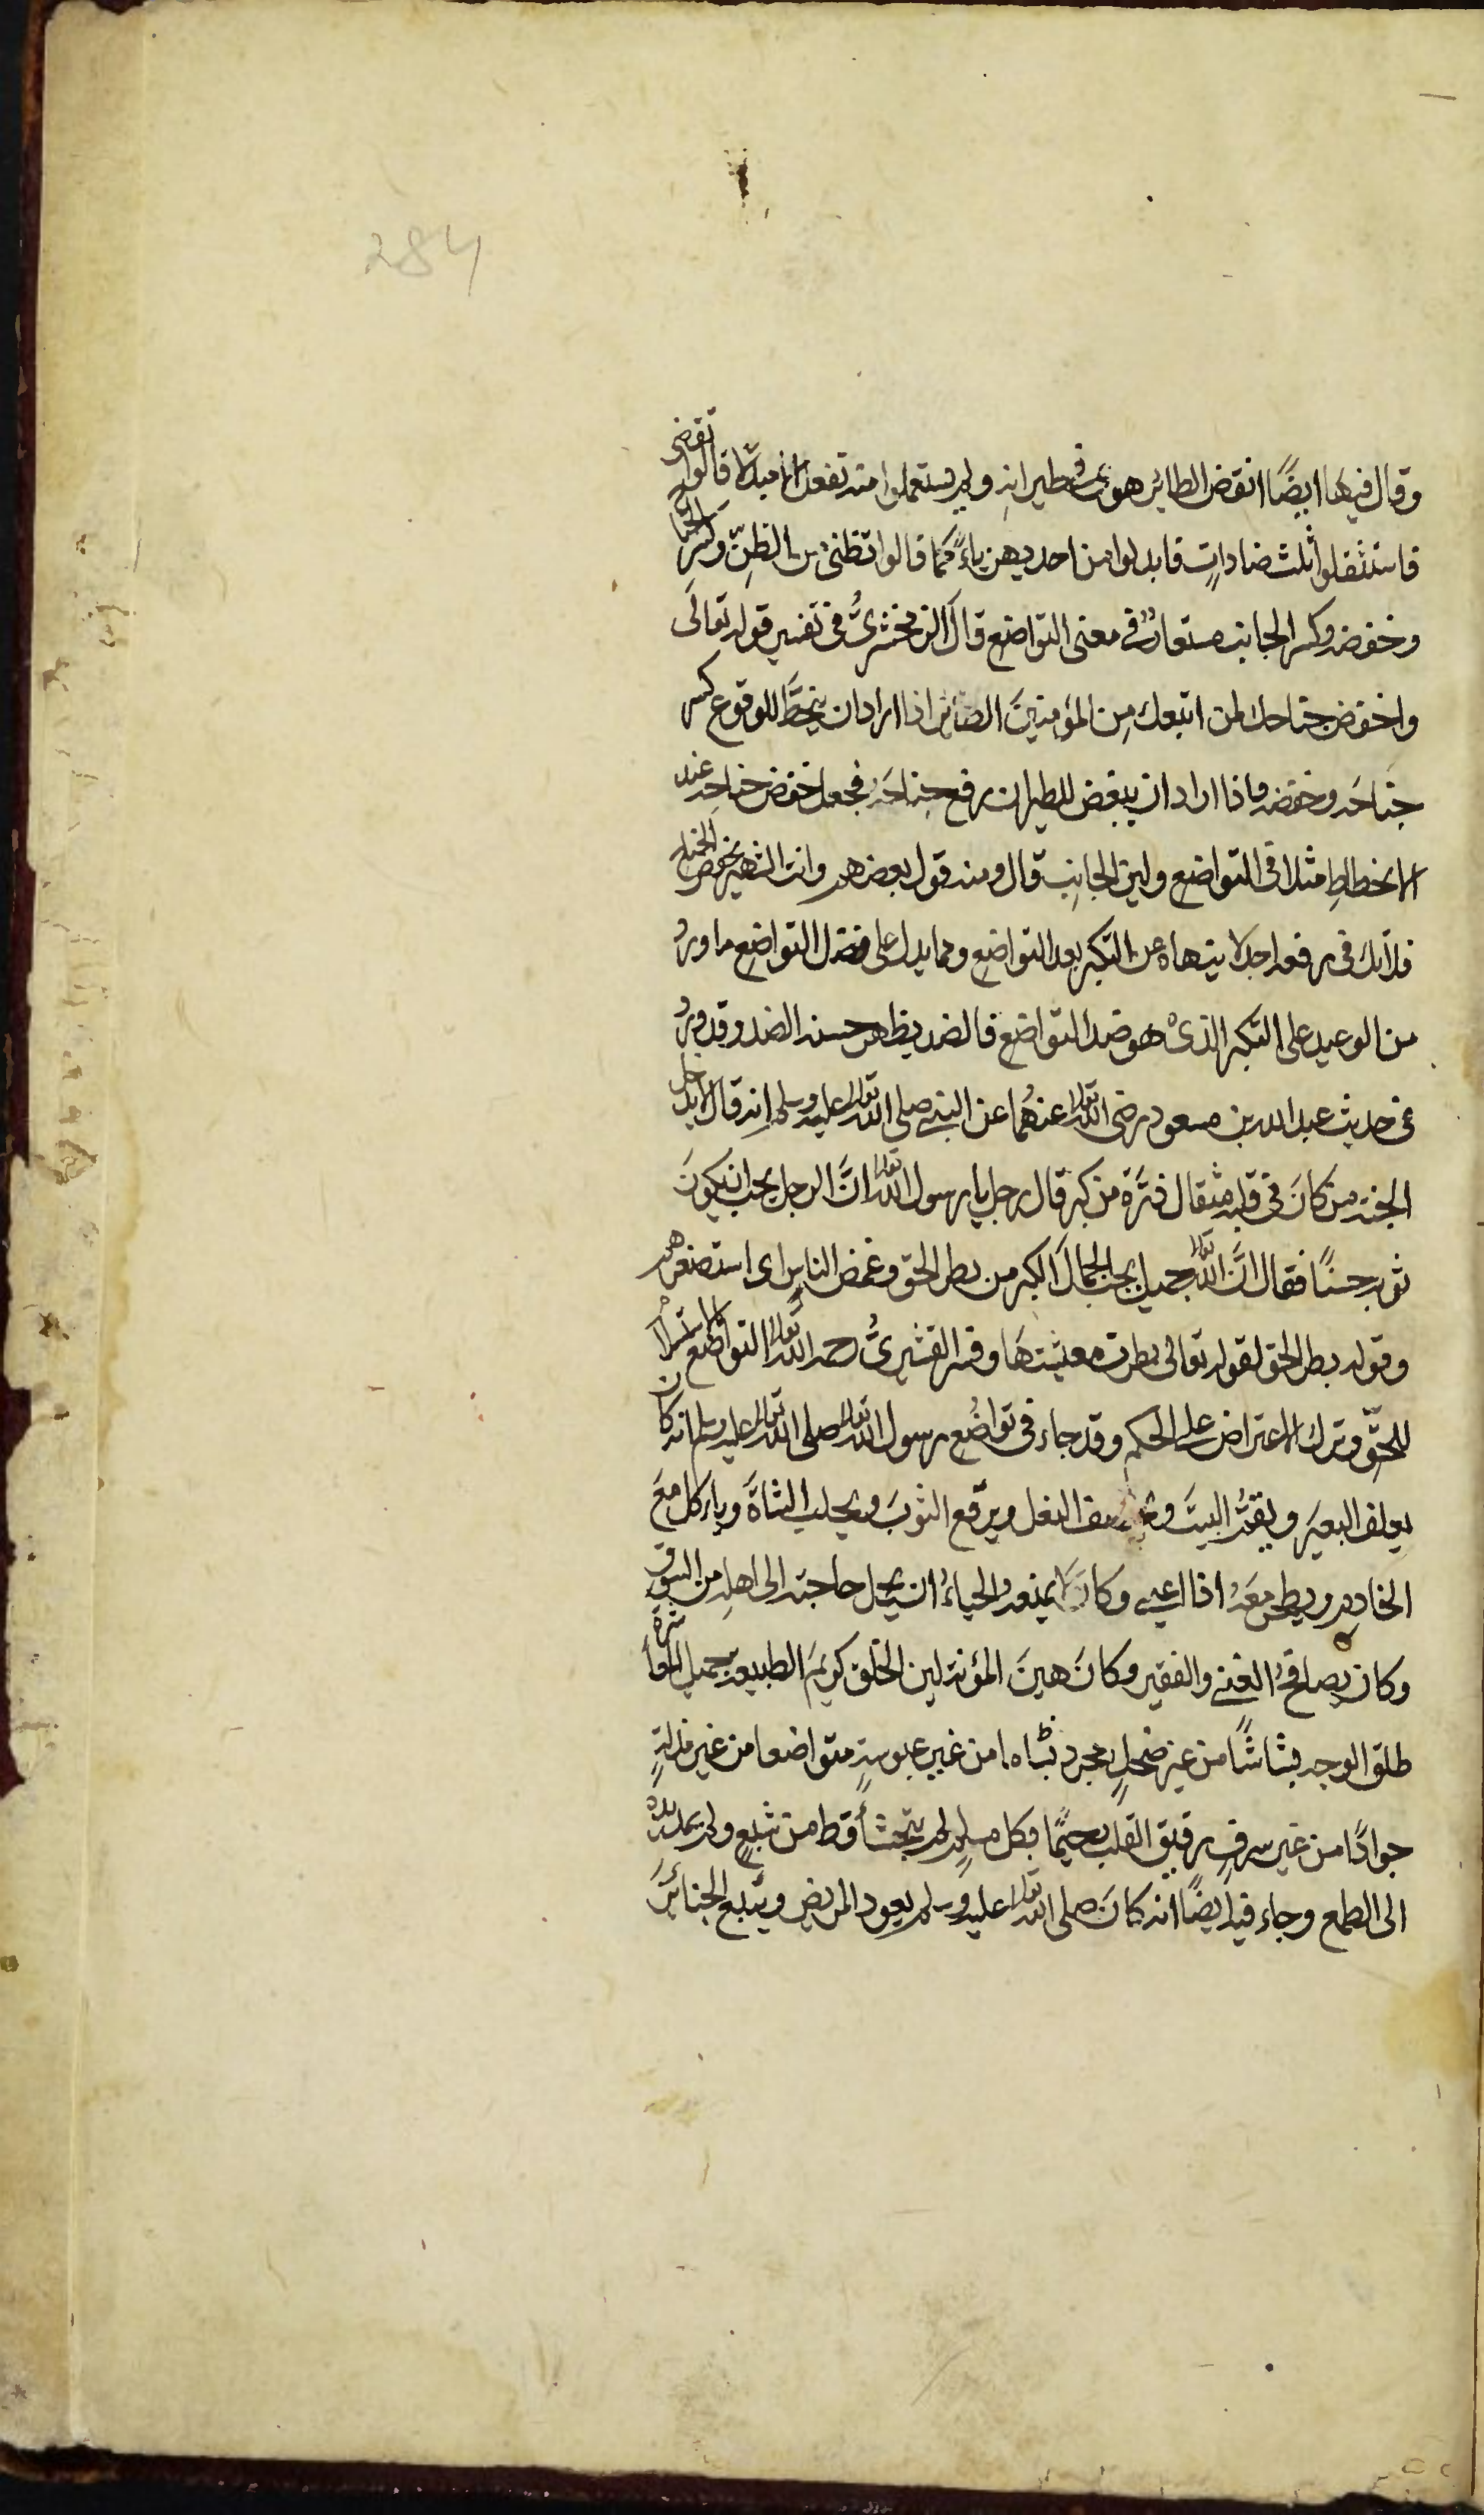 284
وقال فيها ايضًا انقض الطائر هوى في طيرانه ولم يستعملوا منه تفعل الا مبدلا قالوا تقضى
فاستثقلوا ثلث ضاداتٍ فابدلوا من احديهن ياءً كما قالوا تظنى من الظنّ وكسر الجناح
وخفضه وكسر الجانب مستعارٌ في معنى التواضع قال الزمخشريُّ في تفسير قوله تعالَى
واخفض جناحك لمن اتبعك مِن المؤمنينَ الطائر اذا اراد ان ينحطَّ للوقوع كسر
جناحَه وخفضه واذا اراد ان ينهض للطيران رفع جناحَه فجعل خفض جناحه عند
الانحطاطِ مثلا في التواضع ولين الجانِب قال ومنه قول بعضهم وانت الشهير بخفض الجناح
فلا تك في رفعه اجدلا ينهاه عن التكبر بعد التواضع ومما يدل على فضل التواضع ما وردُ
من الوعيد على التكبر الذى هو ضد التواضع فالضد يظهر حسنه الضد وقد وردُ
في حديث عبد الله بن مسعود رضى الله تعالى عنهُما عن النبي صلى الله تعالى عليه وسلم انه قال لا يدخل
الجنه من كانَ في قلبه مثقال ذرَّة من كبر قال رجل يا رسول الله تعالى انَّ الرجل يحب ان يكونَ
ثوبه حسنًا فقال انَّ الله تعالى جميل يحب الجمالَ الكبر من بطر الحق وغمض الناس اى استصغرهم
وقوله بطر الحق لقوله تعالى بطرت معيشتهَا وفسر القشيرىُّ رحمه الله تعالى التواضع بالاستسلام
للحقّ وترك الاعتراض على الحكم وقد جاء في تواضُع رسول الله تعالى صلى الله تعالى عليه وسلم انه كان
يعلف البعيرَ ويقمُّ البيتَ ويخصف النعل ويرقّع الثوبَ ويحلب الشاةَ وياكل معَ
الخادمِ ويطحن معَهُ اذا اعيي وكانَ لا يمنعه الحياءُ ان يحمل حاجته الى اهله من السوق
وكان يصافحُ الغني والفقير وكانَ هينَ المؤنة لين الخلق كريمَ الطبيعة جميل المعاشرة
طلق الوجه بشاشًا من غير ضحكٍ من غير عبوسةٍ متواضعا من غير مذلةٍ
جوادًا من غير سرفٍ رقيق القلب رحيمًا بكل مسلمٍ لم يتجشأ قط من شبعٍ ولم يمد يده
الى الطمع وجاء فيه ايضًا انه كانَ صلى الله تعالى عليه وسلم يعود المريض ويتبع الجنائزَ